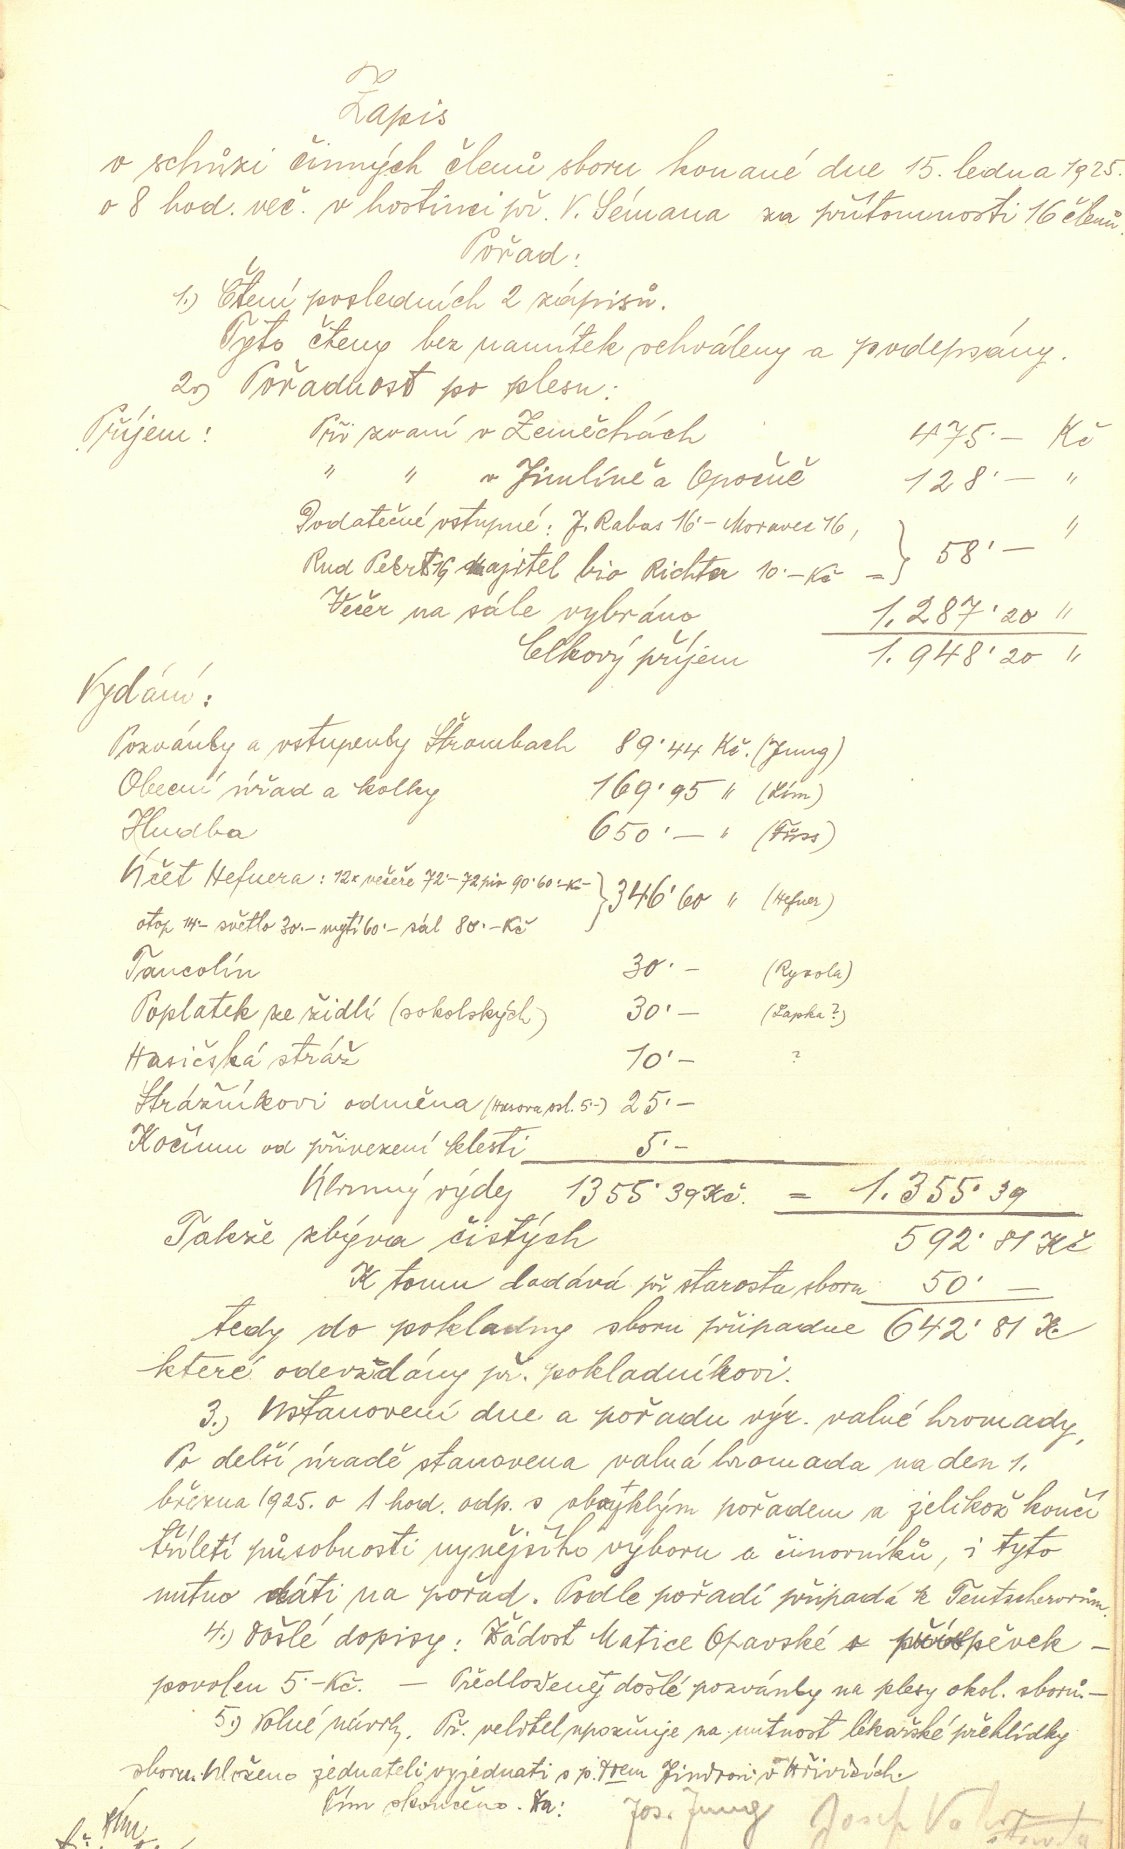 Zápis
o schůzi činných členů sboru konané dne 15. ledna 1925.
o 8 hod. več. v hostinci př. V. Sémana za přítomnosti 16 členů.
Pořad:
1.) Čtení posledních 2 zápisů.
Tyto čteny bez námitek schváleny a podepsány.
2.) Pořadnost po plesu:
Příjem: Při zvaní v Zeměchách 475·— Kč
" " v Jimlíně a Opočně 128·— "
Dodatečné vstupné: J. Rabas 16·— Moravec 16,
Rud Petrt 16, majitel bio Richter 10·— Kč = } 58·— "
Večer na sále vybráno 1.287·20 "
Celkový příjem 1.948·20 "
Vydání:
Pozvánky a vstupenky Štrombach 89·44 Kč. (Jung)
Obecní úřad a kolky 169·95 " (Kím)
Hudba 650·— " (Füss)
Účet Hefnera: 12x večeře 72·— 72 piv 90·60 Kč
otop 14·— světlo 30·— mytí 60·— sál 80·— Kč } 346·60 " (Hefner)
Tancolín 30·— (Ryzola)
Poplatek ze židlí (sokolských) 30·— (Zapka?)
Hasičská stráž 10·— ?
Strážníkovi odměna 25·—
Kočímu od přivezení klestí 5·—
Úhrnný výdej 1355·39 Kč. = 1.355·39
Takže zbývá čistých 592·81 Kč
K tomu dodává př starosta sboru 50·—
tedy do pokladny sboru připadne 642·81 K.
které odevzdány př. pokladníkovi.
3.) Ustanovení dne a pořadu výr. valné hromady,
Po delší úradě stanovena valná hromada na den 1.
března 1925. o 1 hod. odp. s obvyklým pořadem a jelikož končí
tříletí působnosti nynějšího výboru a činovníků, i tyto
nutno dáti na pořad. Podle pořadí připadá k Teutscherovům.
4.) Došlé dopisy: Žádost Matice Opavské o příspěvek —
povolen 5·— Kč. — Předloženy došlé pozvánky na plesy okol. sborů.—
5.) Volné návrhy. Př. velitel upozorňuje na nutnost lékařské přehlídky
sboru. Uloženo jednateli vyjednati s p. Drem Jindrou v Hřivicích.
Tím skončeno. Za:
Jos. Jung Josef
starosta
Kím